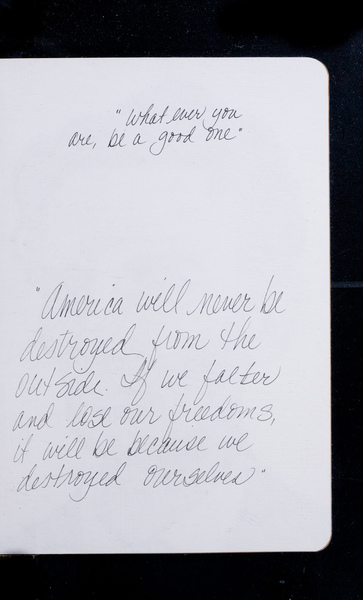 "what ever you
are, be a good one"
"America will never be
destroyed from the
outside. If we falter
and lose our freedoms,
it will be because we
destroyed ourselves"